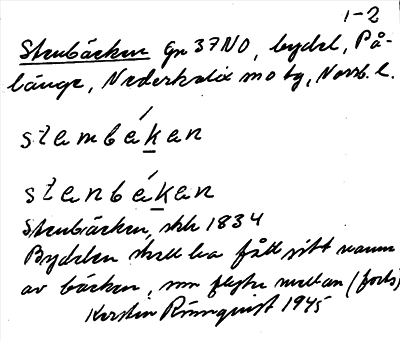 1-2
Stenbäcken Gn 37NO, bydel, På-
länge, Nederkalix sn o tg, Norrb. l.
stembékan
stenbékan
Stenbäcken, skk 1834
Bydelen skall ha fått sitt namn
av bäcken, som flyter mellan (forts)
Kerstin Rönnquist 1945